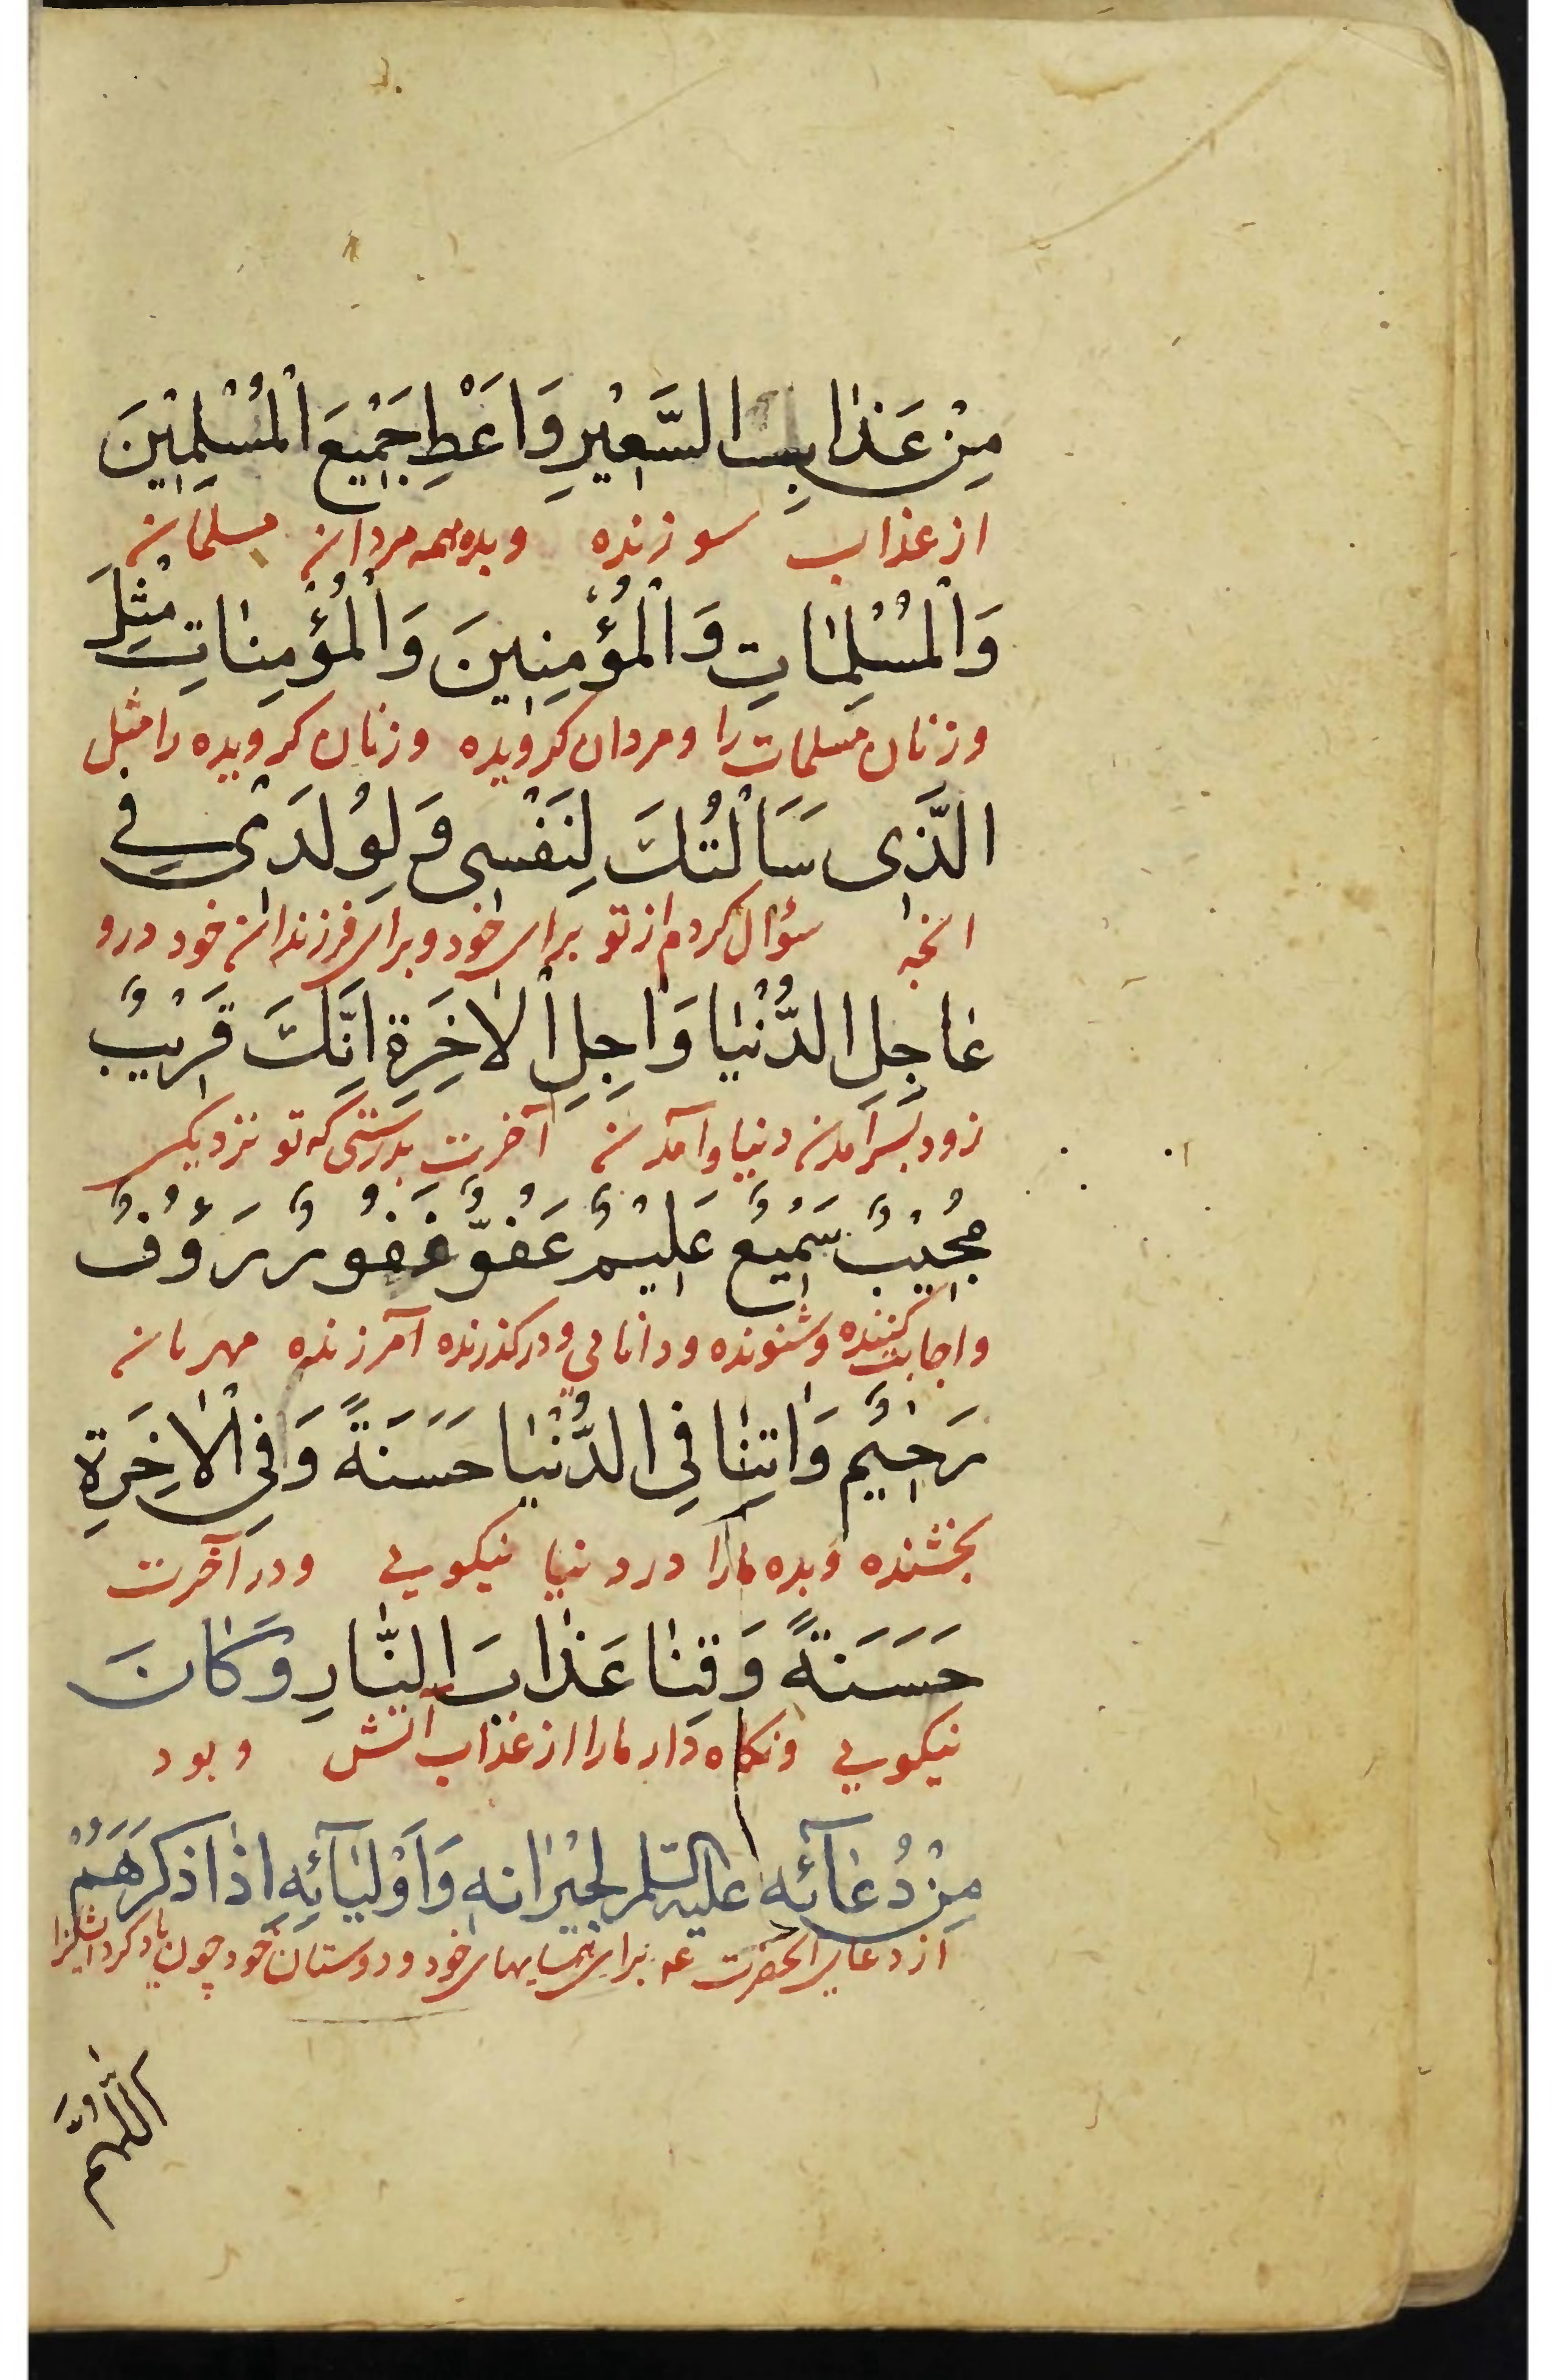 مِنْ عَذَابِ السَّعِيْرِ وَاَعْطِ جَمِيْعَ الْمُسْلِمِيْنَ
از عذاب سوزنده وبده همه مردان مسلمان
وَالْمُسْلِمَاتِ وَالْمُؤْمِنِينَ وَالْمُؤْمِنَاتِ مِثْلَ
وزنان مسلمات را ومردان کرویده وزنان کرویده را مثل
الَّذِی سَاَلْتُكَ لِنَفْسِی وَلِوُلْدِیْ فِي
انچه سؤال کردم از تو برای خود وبرای فرزندان خود درو
عَاجِلِ الدُّنْيَا وَاٰجِلِ الْاٰخِرَةِ اِنَّكَ قَرِيْبٌ
زود بسرامدن دنیا وآمدن آخرت بدرستی که تو نزدیکی
مُجِيْبٌ سَمِيْعٌ عَلِيْمٌ عَفُوٌّ غَفُوْرٌ رَءُوْفٌ
واجابت کننده وشنونده ودانایی ودرکذرنده آمرزنده مهربان
رَحِيْمٌ وَاٰتِنَا فِي الدُّنْيَا حَسَنَةً وَفِي الْاٰخِرَةِ
بخشنده وبده مارا در دنیا نیکویی ودر آخرت
حَسَنَةً وَقِنَا عَذَابَ النَّارِ وَكَانَ
نیکویی ونکاه دار مارا از عذاب آتش وبود
مِنْ دُعَآئِه عليه السّلم لِجِيْرَانِهِ وَاَوْلِيَآئِهِ اِذَا ذَكَرَهُمْ
از دعای آنحضرت عه برای همسایهای خود ودوستان خود چون یاد کرد ایشانرا
اللّٰهُمَّ